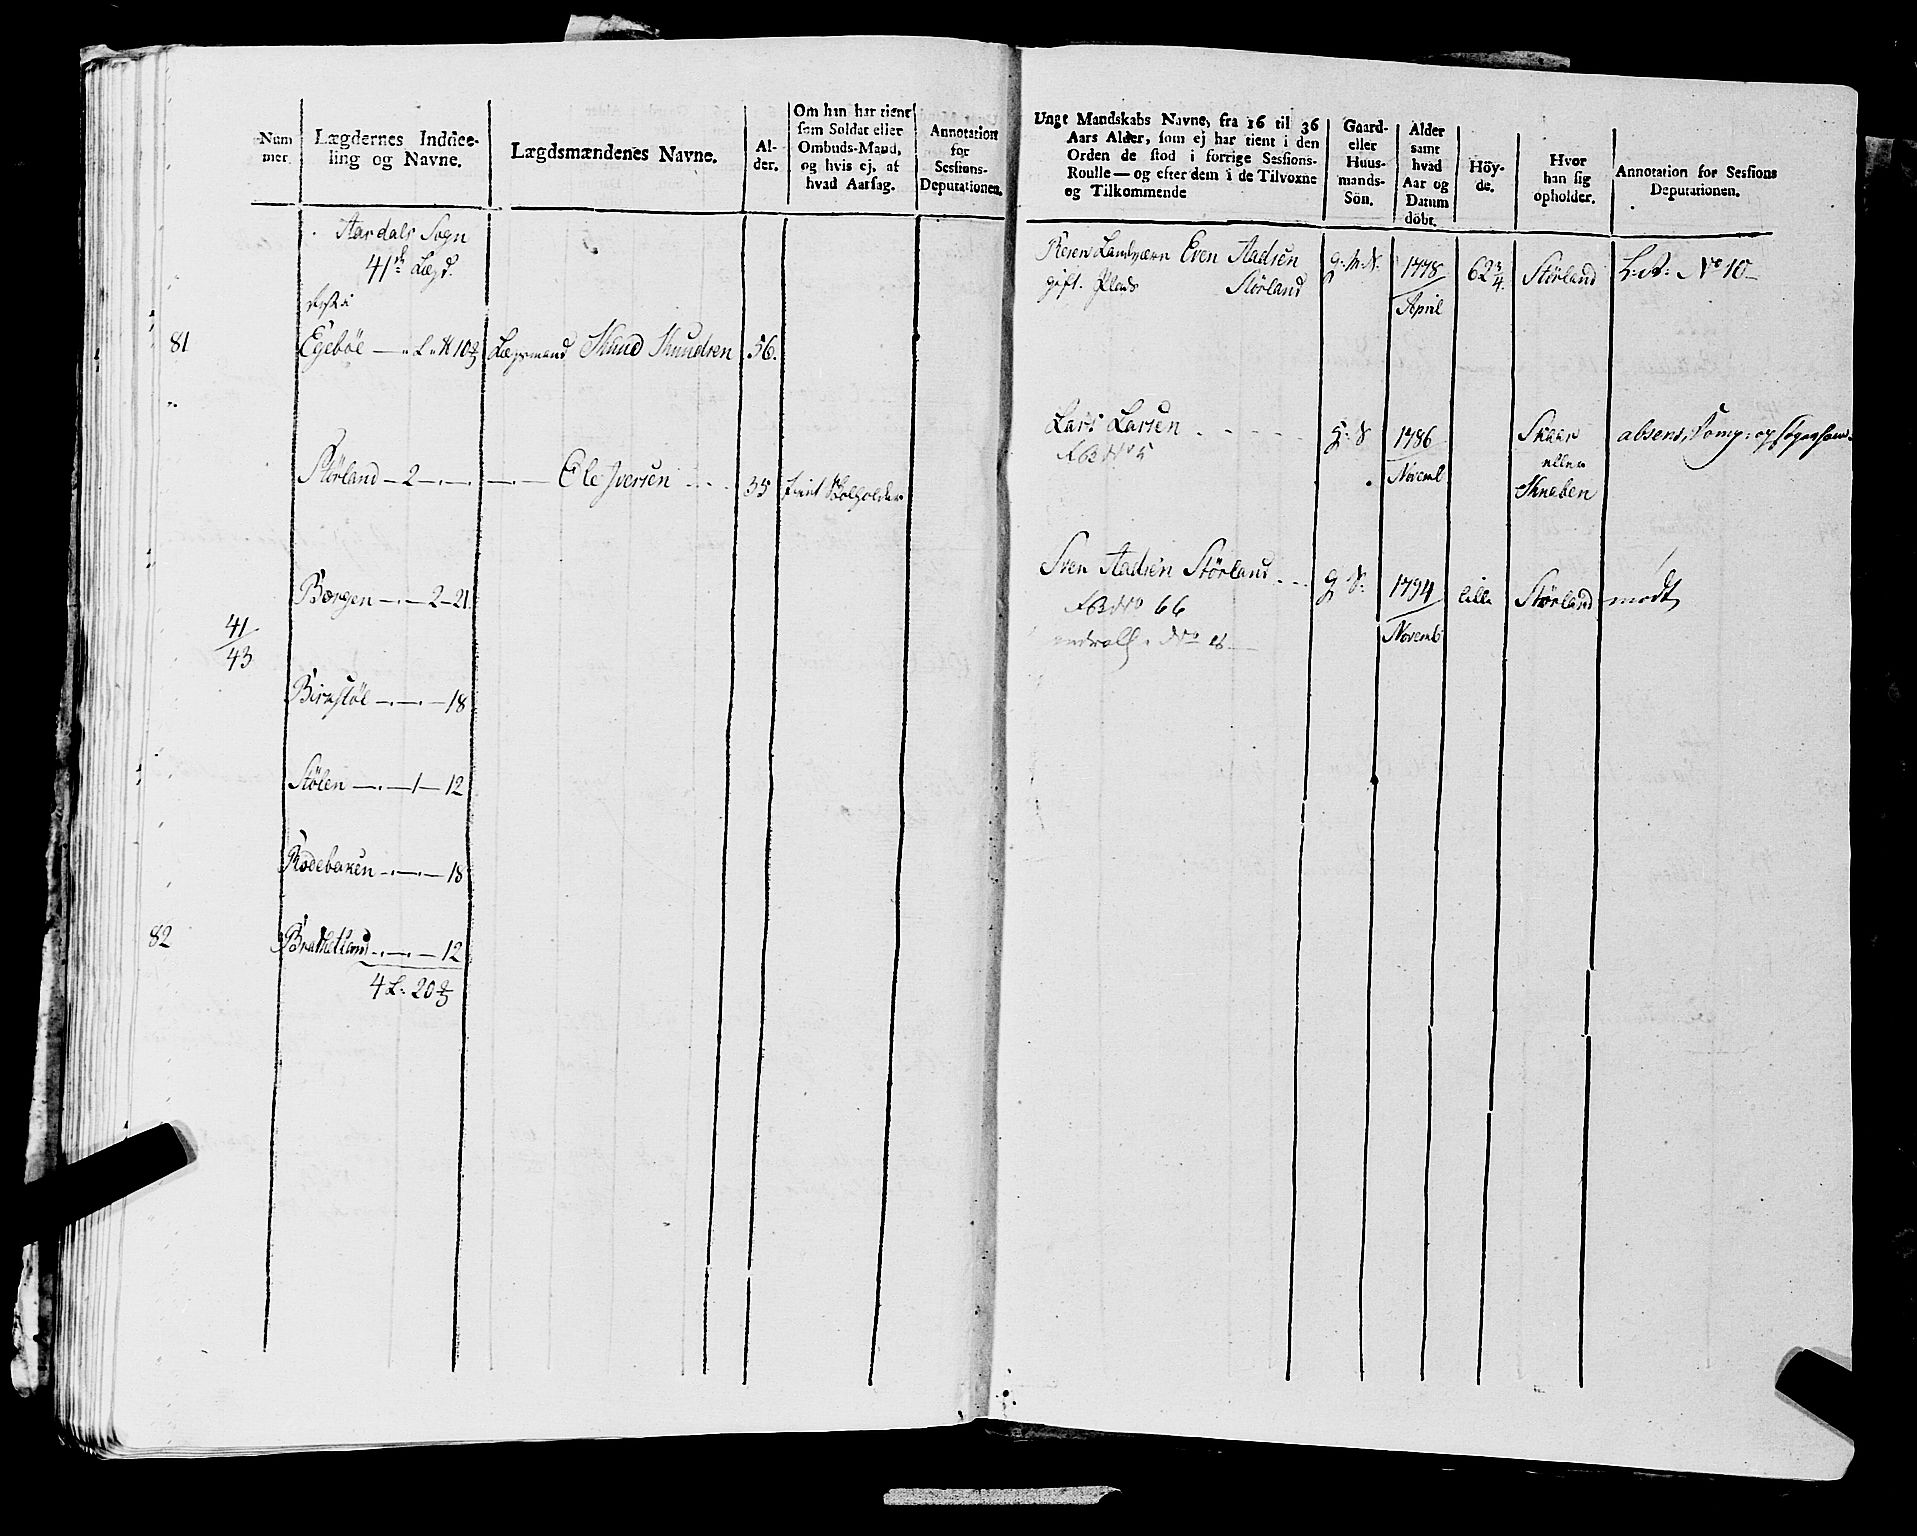 Num
mer.
Lægdernes Inddee-
ling og Navne.
Lægdsmændenes Navne.
Al-
der.
Om han har tient
som Soldat eller
Ombuds-Mand,
og hvis ej, af
hvad Aarsag.
Annotation
for
Sessions-
Deputationen.
Aardals Sogn
41de Lægd.
81
Egebøe
Lægsmand Knud Knudsen 56.
Størland - 2 - Ole Iversen 35 tient
Børgen 2 - 21
41
43
Birkstøl 18
Stølen 1 - 12
Rodebakken 18
82
Brathetland 12
4 L: 20
Ungt Mandskabs Navne, fra 16 til 36
Aars Alder, som ej har tient i den
Orden de stod i forrige Sessions-
Roulle — og efter dem i de Tilvoxne
og Tilkommende
Gaard-
eller
Huus-
mands-
Sön.
Alder
samt
hvad
Aar og
Datum
döbt.
Höy-
de.
Hvor
han sig
opholder.
Annotation for Sessions
Deputationen.
Landværn Even Aadsen 1778 62 3/4 Størland L: A: No 10
gift. Plads Størland April
Lars Larsen G: S 1786 Skaar absent, Comp: og
No 5 Novemb eller
Knaben
Sven Aadsen Størland G S: 1794 lille Størland mødt
No 66 Novemb